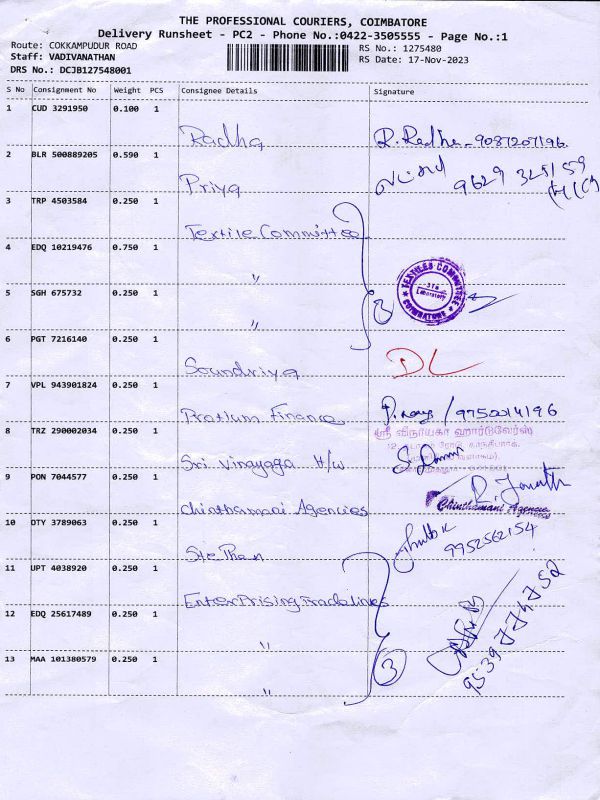 THE PROFESSIONAL COURIERS, COIMBATORE
Delivery Runsheet - PC2 - Phone No.:0422-3505555 - Page No.:1
Route: COKKAMPUDUR ROAD
Staff: VADIVANATHAN
DRS No.: DCJB127548001
RS No.: 1275480
RS Date: 17-Nov-2023
S No Consignment No Weight PCS Consignee Details Signature
1 CUD 3291950 0.100 1
Radha R. Radha - 9087207196
2 BLR 500889205 0.590 1
Priya 9629 325159
3 TRP 4503584 0.250 1
Textile Committee
4 EDQ 10219476 0.750 1
"
TEXTILES COMMITTEE
Laboratory
COIMBATORE
5 SGH 675732 0.250 1
"
6 PGT 7216140 0.250 1
Soundriya DL
7 VPL 943901824 0.250 1
Pratium Finance / 9750014196
ஸ்ரீ விநாயகா ஹார்டுவேர்ஸ்
8 TRZ 290002034 0.250 1
Sri Vinayaga H/W
9 PON 7044577 0.250 1
Chinthamani Agencies
Chinthamani Agencies
10 DTY 3789063 0.250 1
Stephen 9952562154
11 UPT 4038920 0.250 1
Enterprising Tradelines
12 EDQ 25617489 0.250 1
"
13 MAA 101380579 0.250 1
" 3